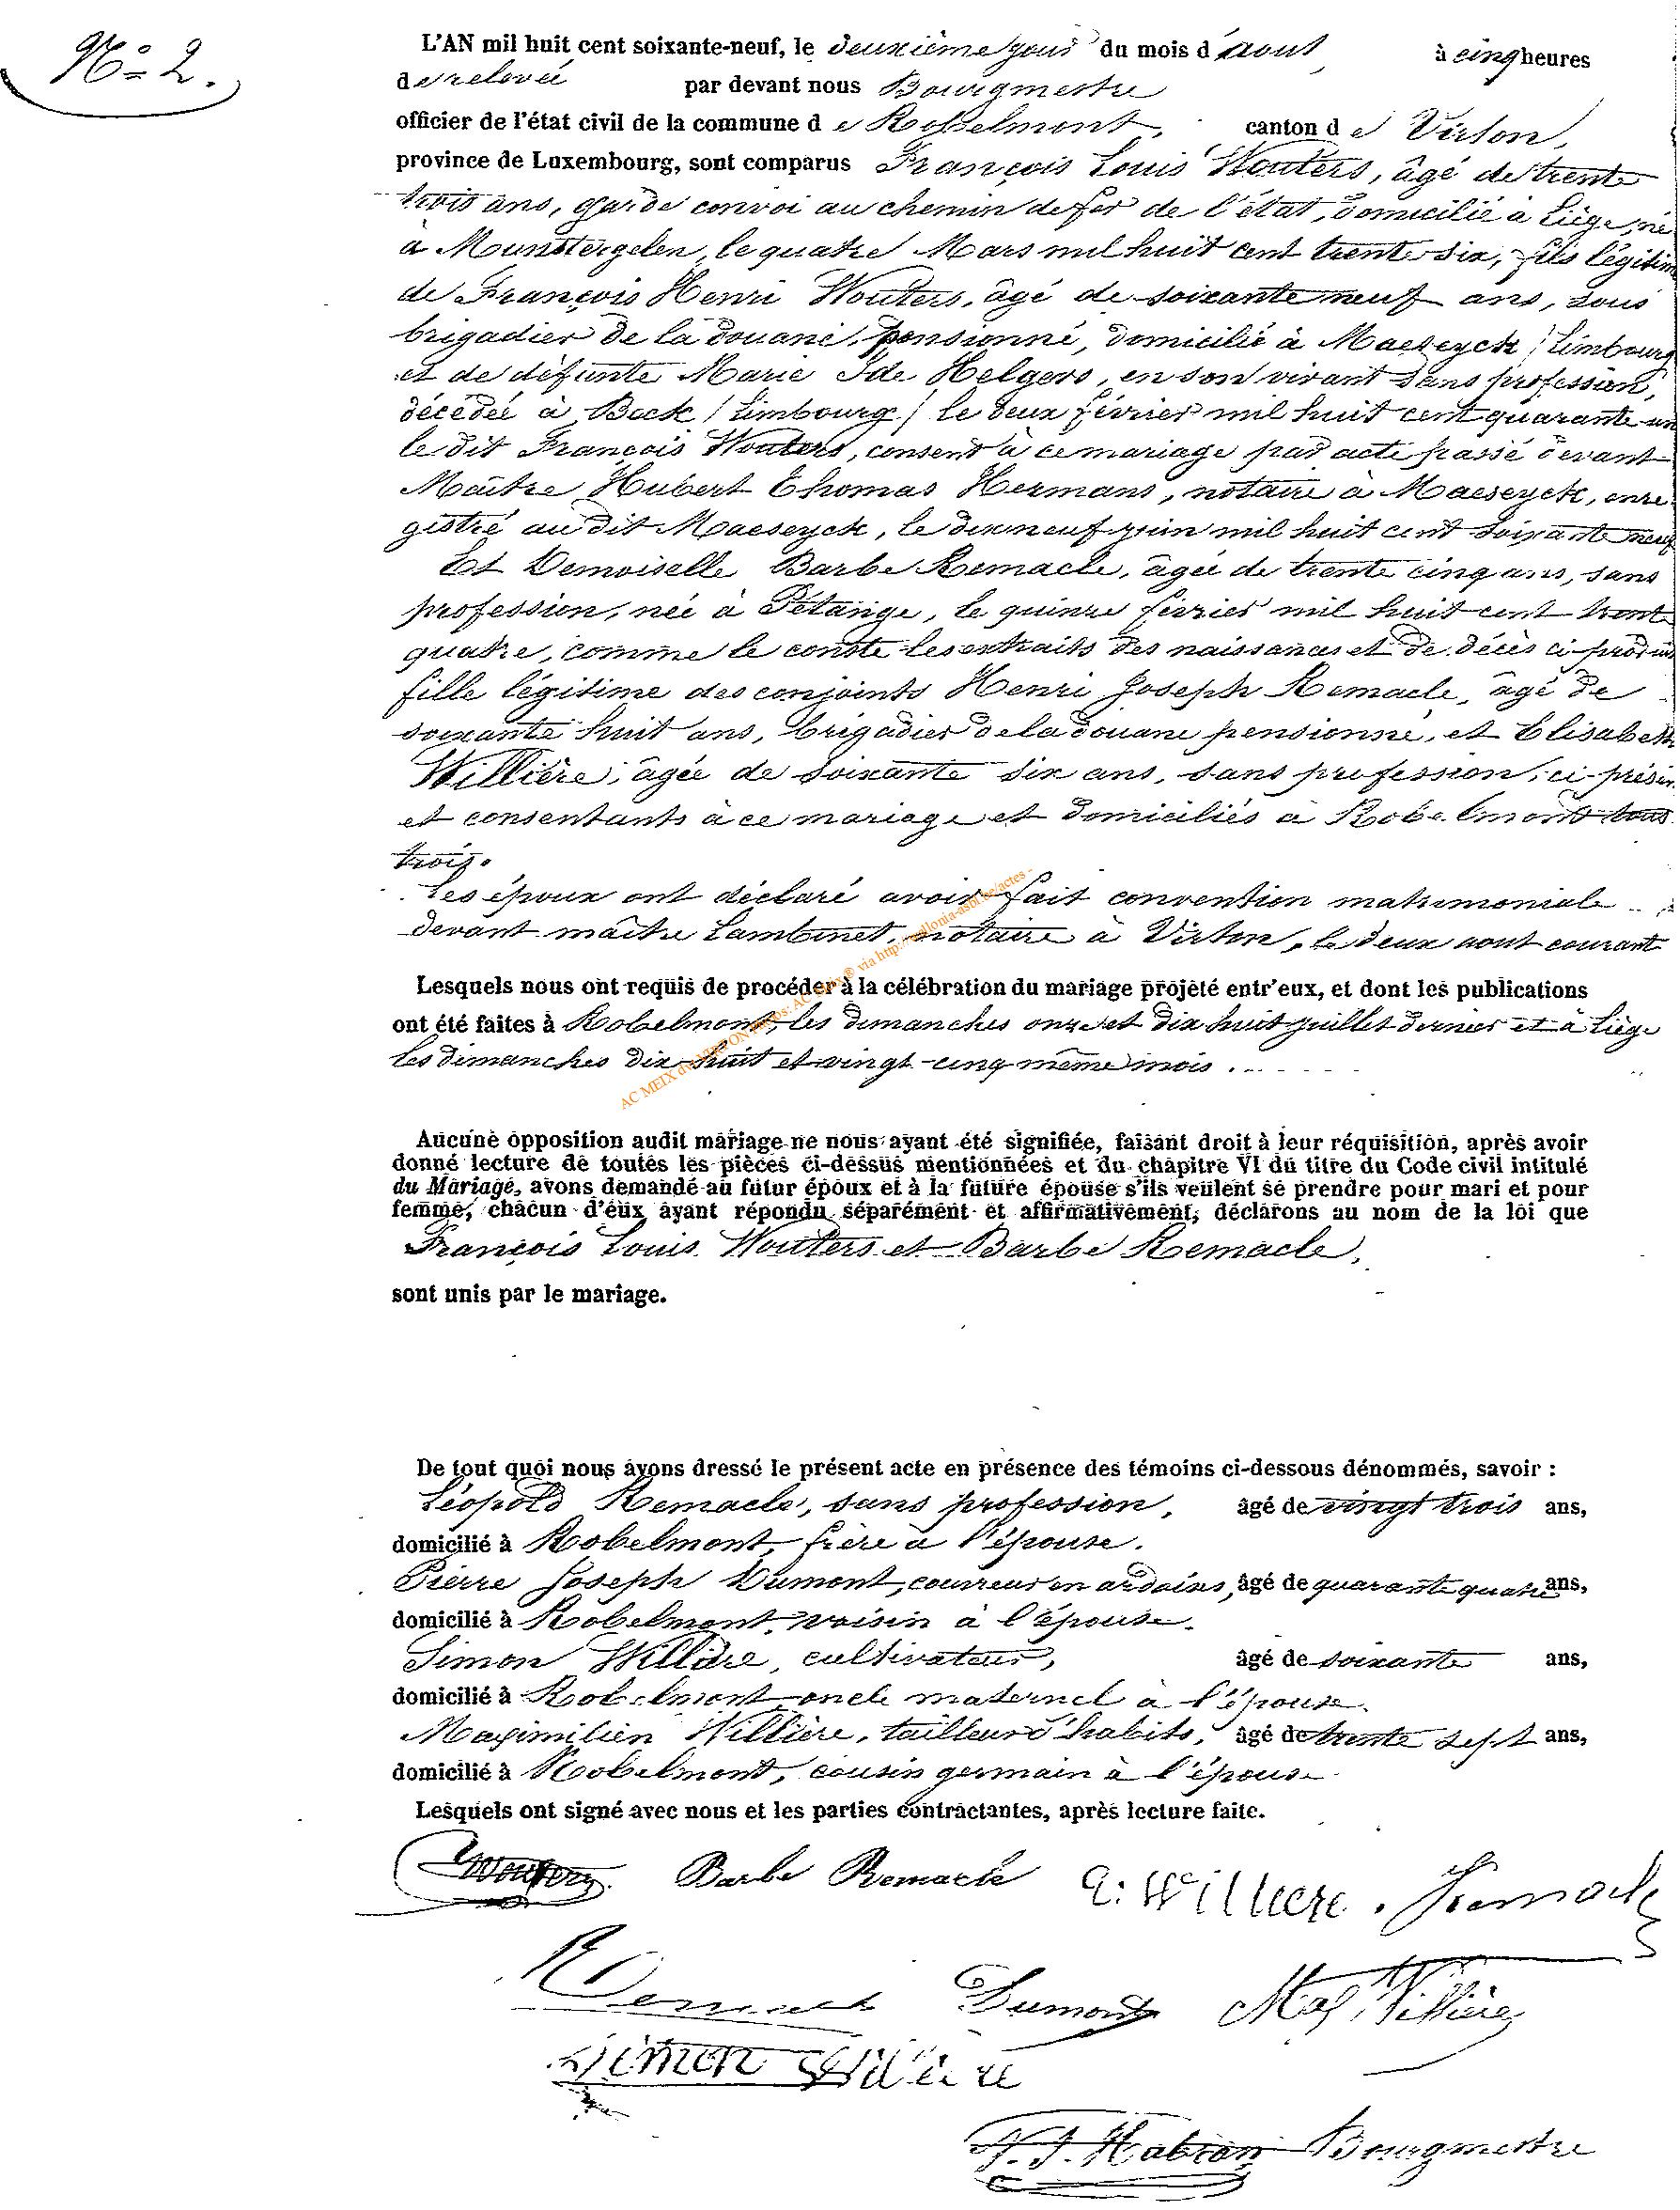 N° 2.
L'AN mil huit cent soixante-neuf, le deuxième jour du mois d'aout à cinq heures
de relevée par devant nous Bourgmestre
officier de l'état civil de la commune de Robelmont, canton de Virton,
province de Luxembourg, sont comparus François Louis Wouters, âgé de trente
trois ans, garde convoi au chemin de fer de l'état, domicilié à Liège, né
à Munstergelen, le quatre Mars mil huit cent trente six, fils légitim
de François Henri Wouters, âgé de soixante neuf ans, sous
brigadier de la douane, pensionné, domicilié à Maeseyck / Limbourg
et de défunte Marie Ide Helgers, en son vivant sans profession,
décédée à Beek / Limbourg / le deux février mil huit cent quarante un
le dit François Wouters, consent à ce mariage par acte passé devant
Maître Hubert Thomas Hermans, notaire à Maeseyck, enre-
gistré au dit Maeseyck, le dix neuf juin mil huit cent soixante neuf
Et Demoiselle Barbe Remacle, âgée de trente cinq ans, sans
profession, née à Pétange, le quinze février mil huit cent trente
quatre, comme le conste les extraits des naissances et de décès ci-produits
fille légitime des conjoints Henri Joseph Remacle, âgé de
soixante huit ans, brigadier de la douane pensionné, et Elisabeth
Willière, âgée de soixante six ans, sans profession, ci-présen
et consentants à ce mariage et domiciliés à Robelmont tous
trois.
Les époux ont déclaré avoir fait convention matrimoniale
devant maître Lambinet, notaire à Virton, le deux aout courant
Lesquels nous ont requis de procéder à la célébration du mariage projeté entr'eux, et dont les publications
ont été faites à Robelmont, les dimanches onze et dix huit juillet dernier et à Liège
les dimanches dix-huit et vingt-cinq même mois.
AC MEIX dvt VIRTON photos: AC Meix ® via http://wallonia-asbl.be/actes -
Aucune opposition audit mariage ne nous ayant été signifiée, faisant droit à leur réquisition, après avoir
donné lecture de toutes les pièces ci-dessus mentionnées et du chapitre VI du titre du Code civil intitulé
du Mariage, avons demandé au futur époux et à la future épouse s'ils veulent se prendre pour mari et pour
femme, chacun d'eux ayant répondu séparément et affirmativement, déclarons au nom de la loi que
François Louis Wouters et Barbe Remacle,
sont unis par le mariage.
De tout quoi nous avons dressé le présent acte en présence des témoins ci-dessous dénommés, savoir :
Léopold Remacle, sans profession, âgé de vingt trois ans,
domicilié à Robelmont, frère à l'épouse.
Pierre Joseph Dumont, couvreur en ardoises, âgé de quarante quatre ans,
domicilié à Robelmont, voisin à l'épouse.
Simon Willière, cultivateur, âgé de soixante ans,
domicilié à Robelmont, oncle maternel à l'épouse.
Maximilien Willière, tailleur d'habits, âgé de trente sept ans,
domicilié à Robelmont, cousin germain à l'épouse
Lesquels ont signé avec nous et les parties contractantes, après lecture faite.
Wouters Barbe Remacle E: Williere. Remacle
Remacle Dumont Max Willière
Simon Willière
Bourgmestre